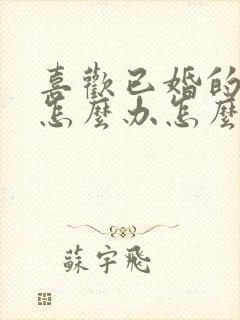 喜歡已婚的
怎麼办怎麼
蘇宇飛